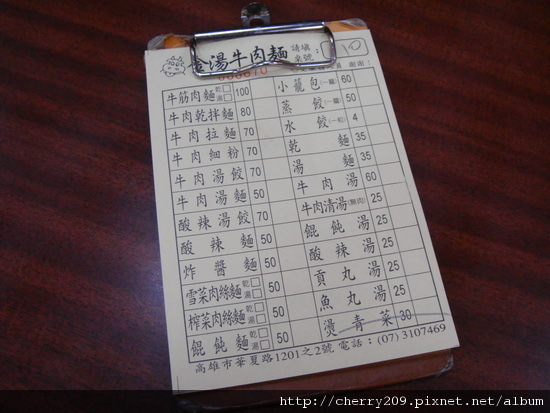 金湯牛肉麵 請填桌號: 10
牛筋肉麵 乾□湯□ 100
牛肉乾拌麵 80
牛肉拉麵 70
牛肉細粉 70
牛肉湯餃 70
牛肉湯麵 50
酸辣湯餃 70
酸辣麵 50
炸醬麵 50
雪菜肉絲麵 乾□湯□ 50
榨菜肉絲麵 乾□湯□ 50
餛飩麵 乾□湯□ 50
小籠包(一籠) 60
蒸餃(一籠) 50
水餃(一粒) 4
乾麵 35
湯麵 35
牛肉湯 60
牛肉清湯(無肉) 25
餛飩湯 25
酸辣湯 25
貢丸湯 25
魚丸湯 25
燙青菜 30
高雄市華夏路1201之2號 電話:(07)3107469
http://cherry209.pixnet.net/album